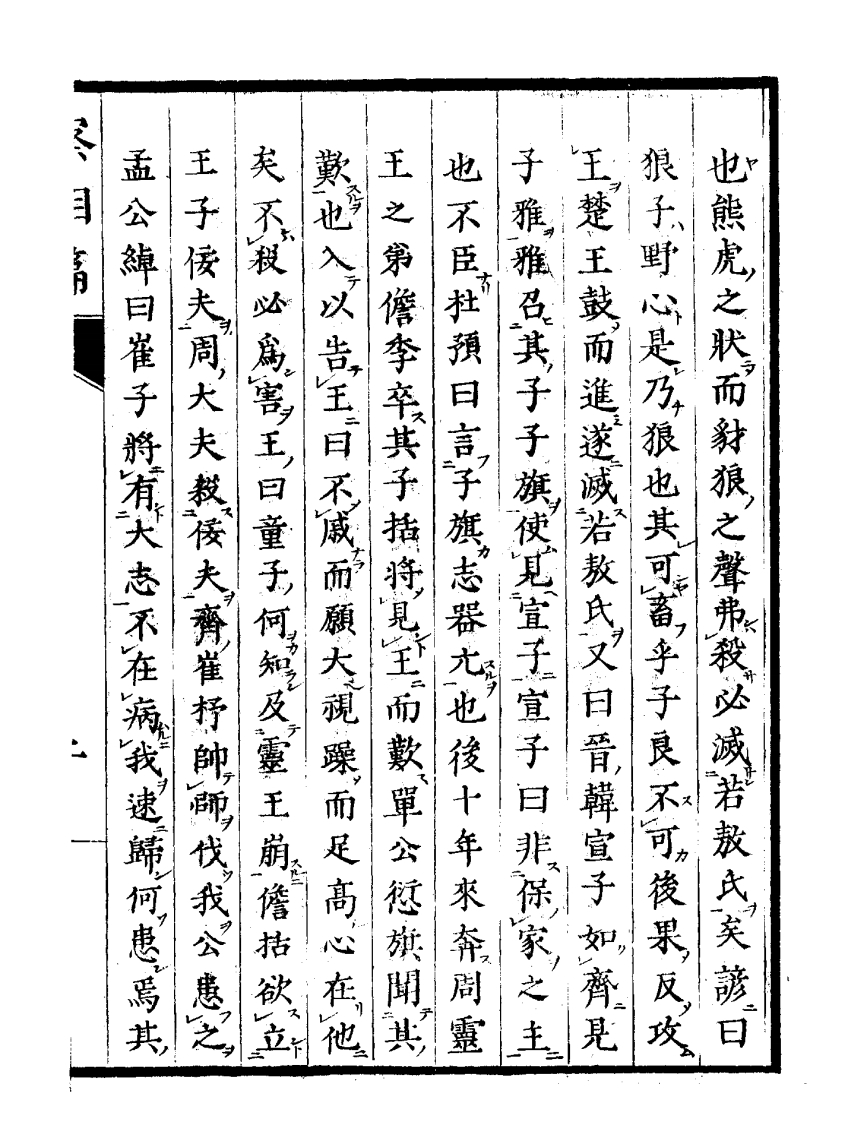 也熊虎之狀而豺狼之聲弗殺必滅若敖氏矣諺曰
狼子野心是乃狼也其可畜乎子良不可後果反攻
王楚王鼓而進遂滅若敖氏又曰晉韓宣子如齊見
子雅雅召其子子旗使見宣子宣子曰非保家之主
也不臣杜預曰言子旗志器亢也後十年來奔周靈
王之弟儋季卒其子括將見王而歎單公愆旗聞其
歎也入以告王曰不戚而願大視躁而足高心在他
矣不殺必爲害王曰童子何知及靈王崩儋括欲立
王子佞夫周大夫殺佞夫齊崔杼帥師伐我公患之
孟公綽曰崔子將有大志不在病我速歸何患焉其